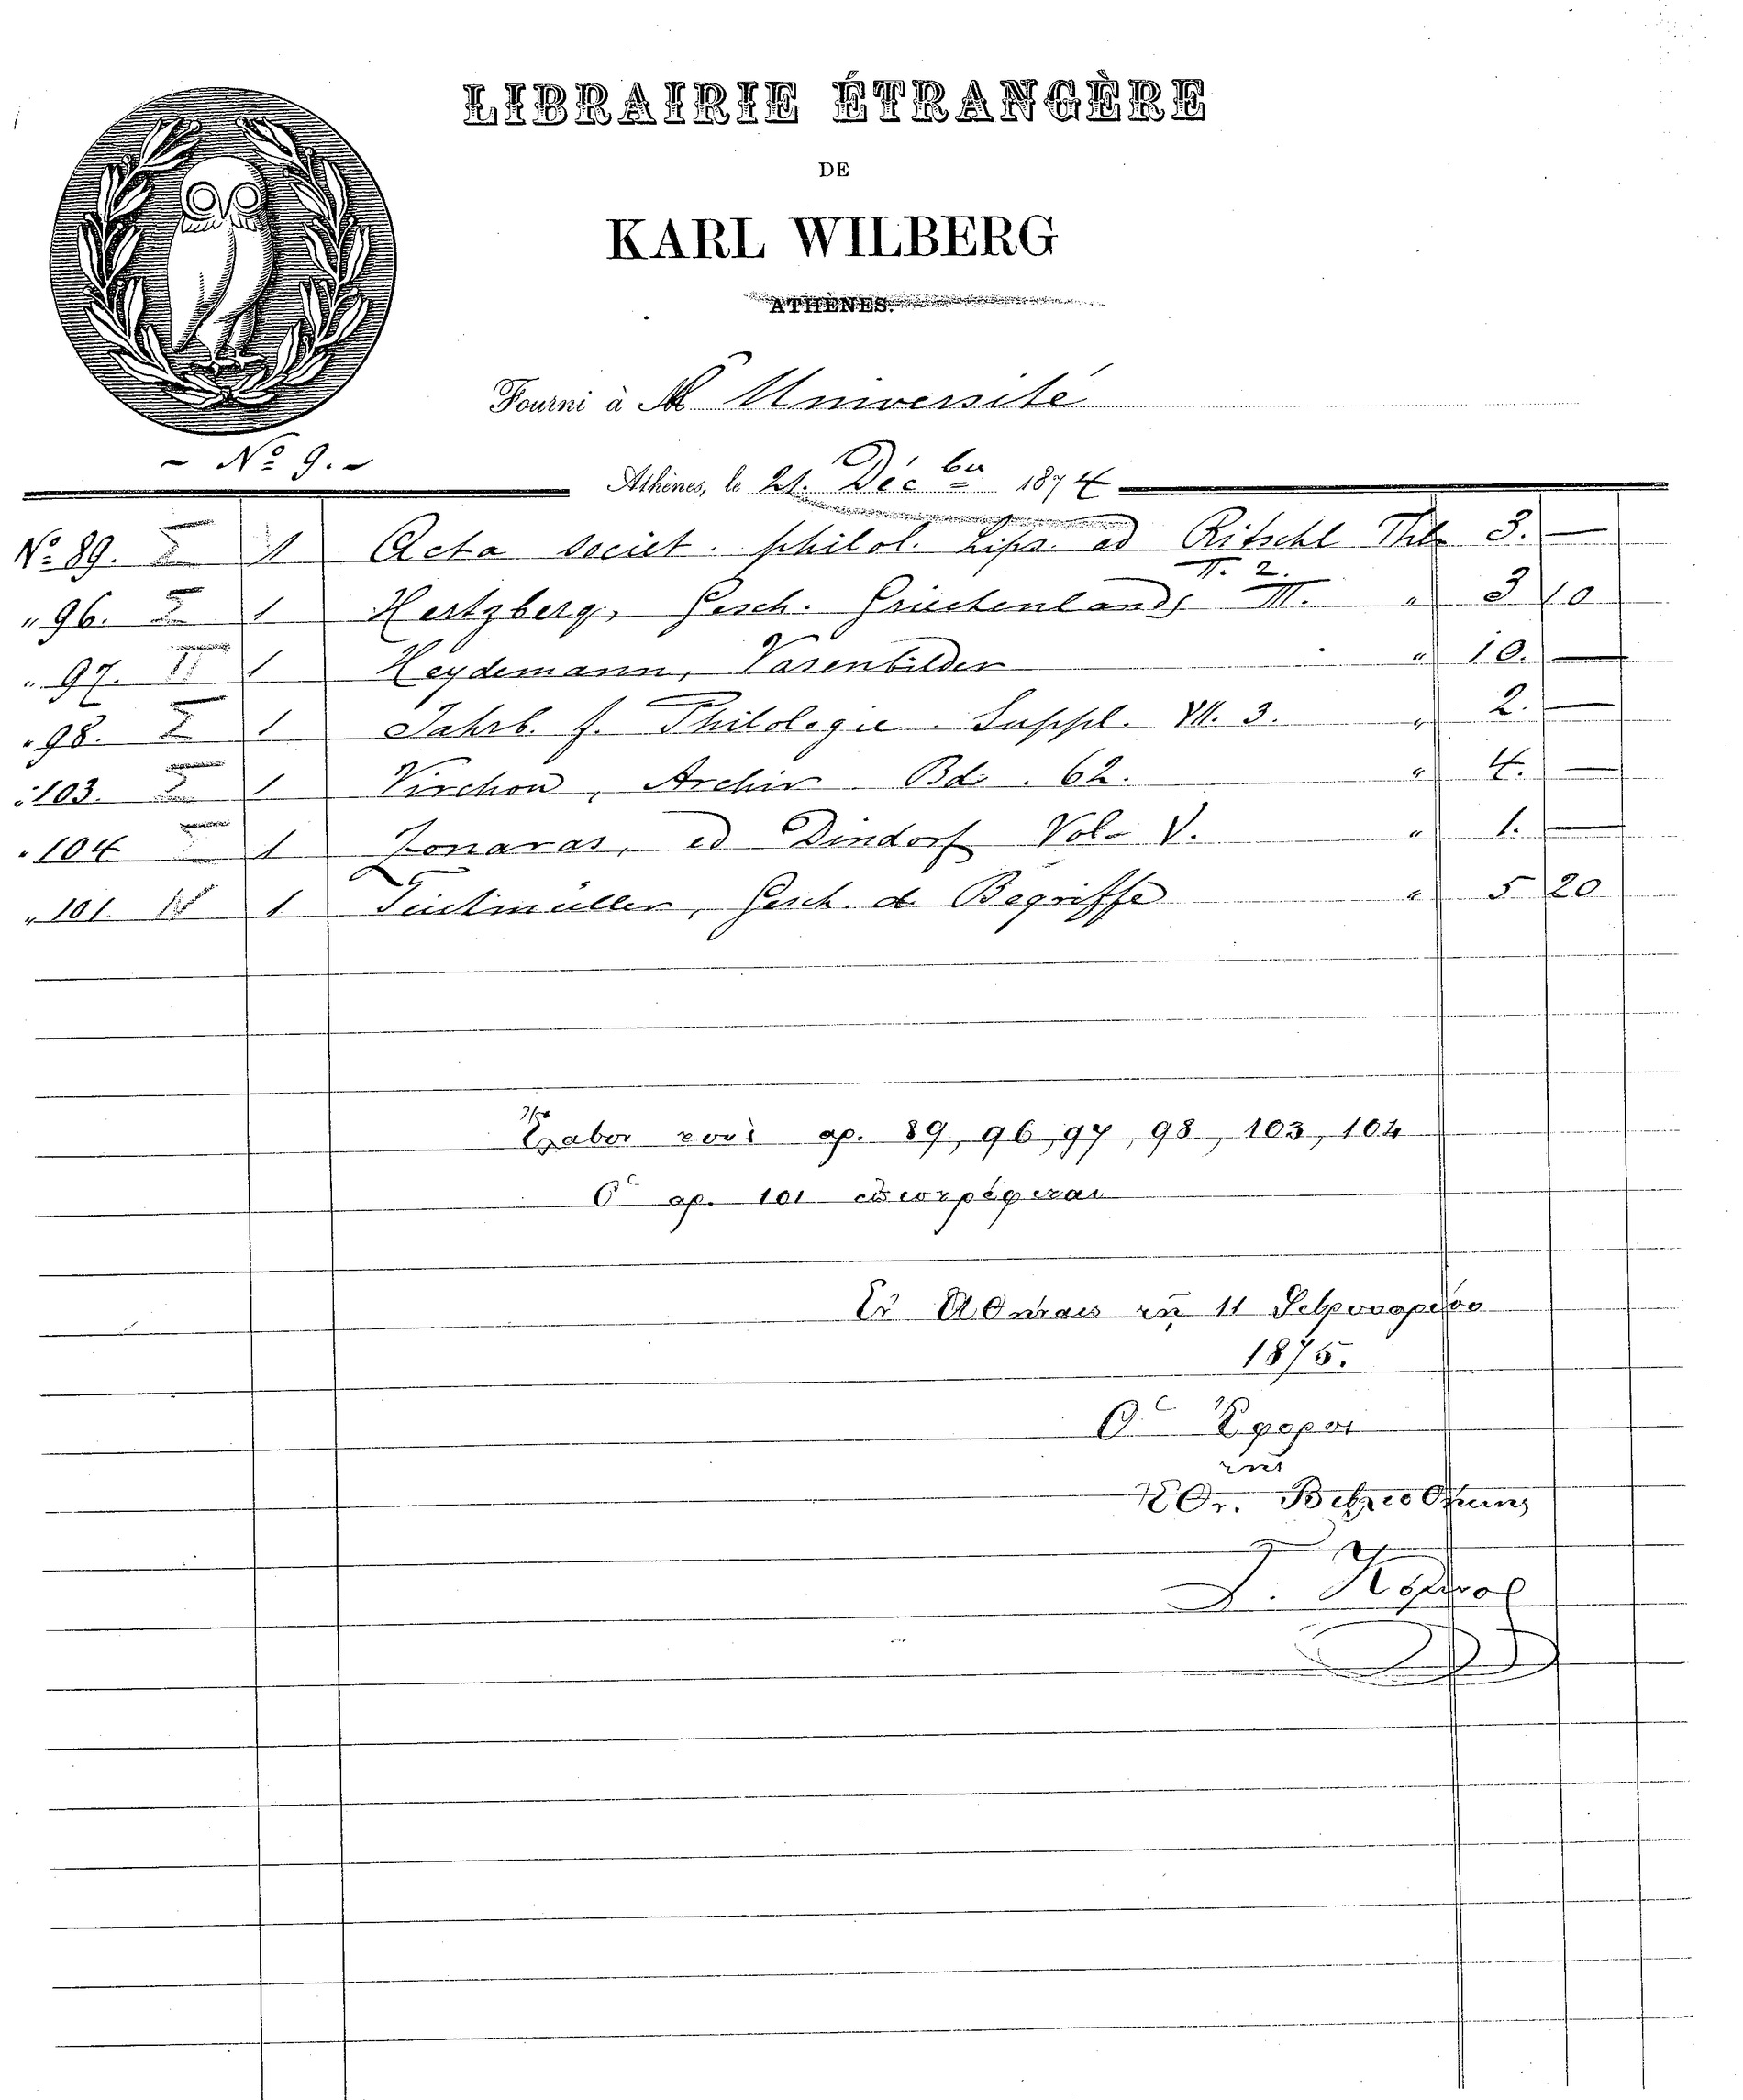 LIBRAIRIE ÉTRANGÈRE
DE
KARL WILBERG
ATHÈNES.
Fourni à l' Université
~ Nº 9. ~
Athènes, le 21. Déc bre 1874
Nº 89. Σ 1 Acta societ. philol. Lips. ed Ritschl Thlr 3. —
T. 2.
" 96. Σ 1 Hertzberg, Gesch. Griechenlands III. " 3 10
" 97. Π 1 Heydemann, Vasenbilder " 10. —
" 98. Σ 1 Jahrb. f. Philologie. Suppl. VII. 3. " 2. —
" 103. Σ 1 Virchow, Archiv Bd. 62. " 4. —
" 104 Σ 1 Zonaras, ed Dindorf Vol. V. " 1. —
" 101. N 1 Teichmüller, Gesch. d Begriffe " 5 20
Ἔλαβον τους αρ. 89, 96, 97, 98, 103, 104
Ὁ αρ. 101 επιστρέφεται
Ἐν Αθήναις τῇ 11 Φεβρουαρίου
1875.
Ὁ Ἔφορος
της
Ἐθν. Βιβλιοθήκης